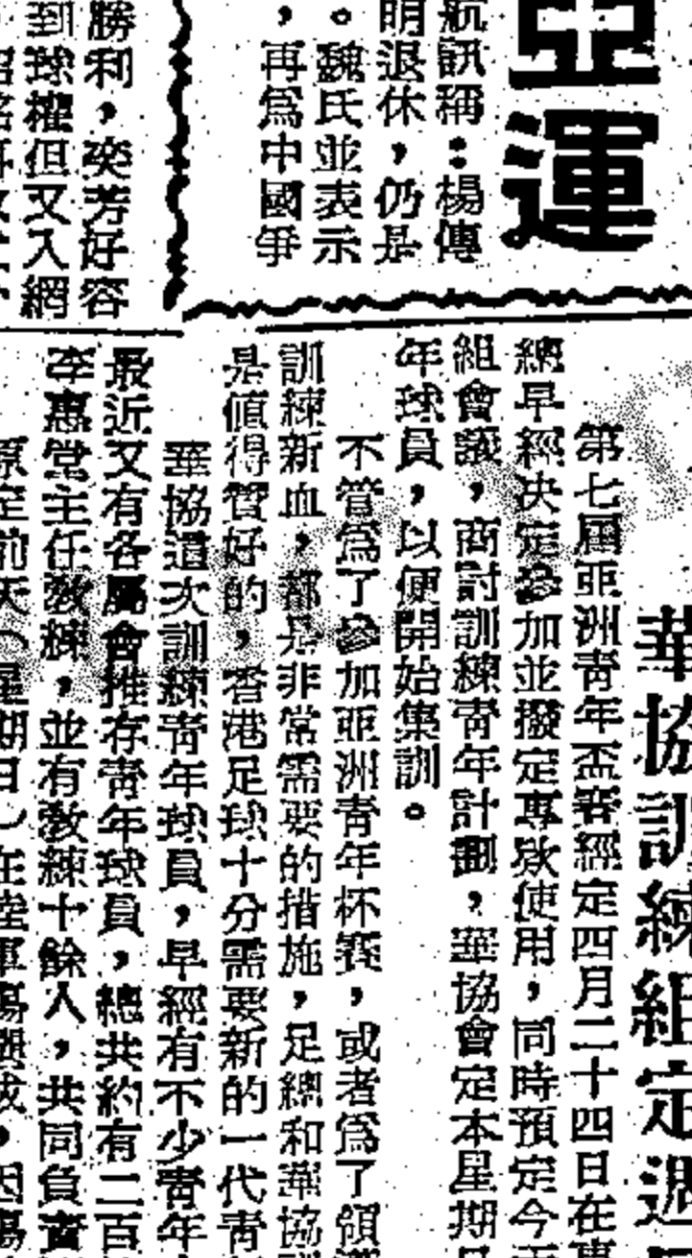 亞運
航訊稱：楊傳
明退休，仍是
。魏氏並表示
，再爲中國爭
勝利，奕芳好容
到球權但又入網
華協訓練組定週
第七屆亞洲青年盃賽經定四月二十四日在
總早經決定參加並撥定專欵使用，同時預定今
組會議，商討訓練青年計劃，華協會定本星期
年球員，以便開始集訓。
不管爲了參加亞洲青年杯賽，或者爲了領
訓練新血，都是非常需要的措施，足總和華協
是值得贊好的，香港足球十分需要新的一代青
華協這次訓練青年球員，早經有不少青年
最近又有各屬會推存青年球員，總共約有二百
李惠堂主任教練，並有教練十餘人，共同負責
原定前天（星期日）在陸軍場選拔，因場